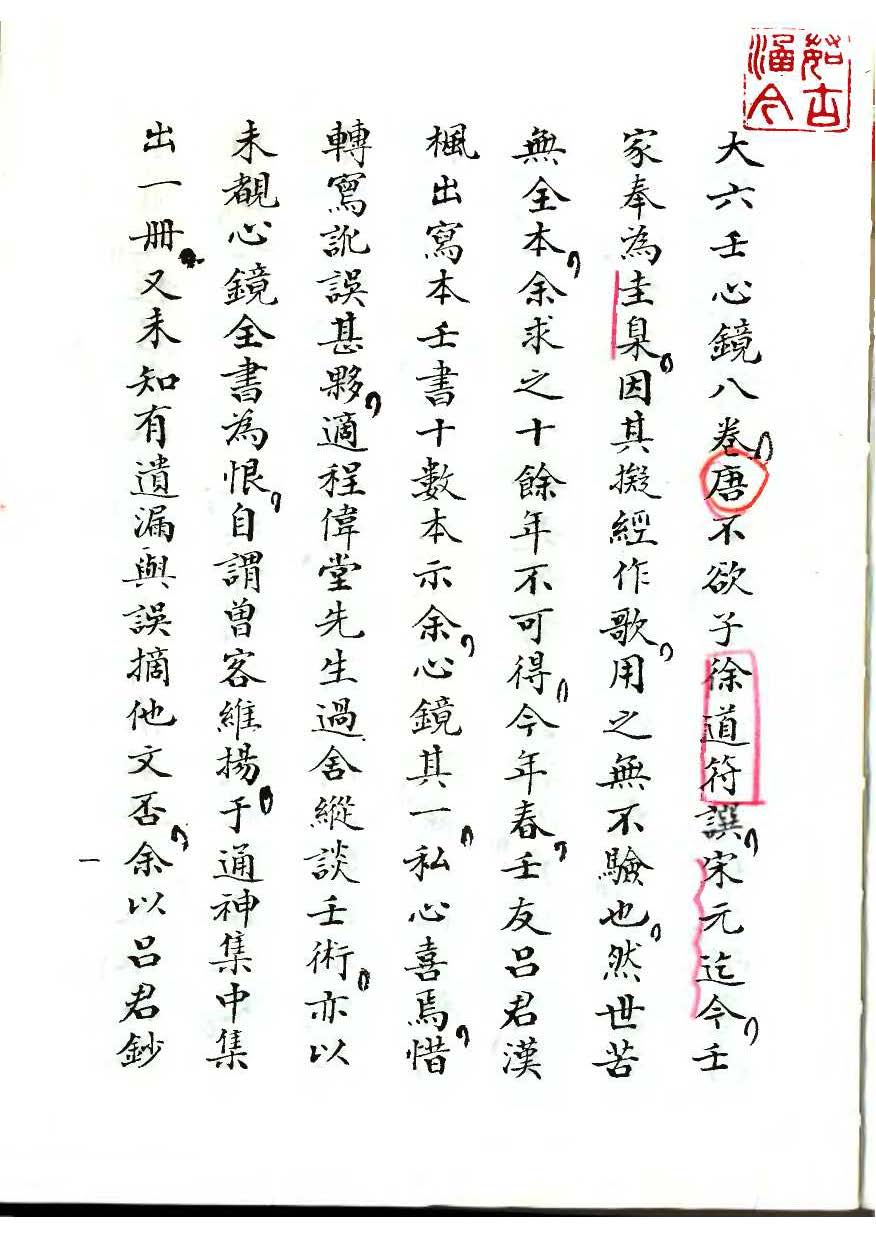 茹古涵今
大六壬心鏡八卷唐不欲子徐道符譔宋元迄今壬
家奉為圭臬因其擬經作歌用之無不驗也然世苦
無全本余求之十餘年不可得今年春壬友呂君漢
楓出寫本壬書十數本示余心鏡其一私心喜焉惜
轉寫訛誤甚夥適程偉堂先生過舍縱談壬術亦以
未覩心鏡全書為恨自謂曾客維揚于通神集中集
出一冊又未知有遺漏與誤摘他文否余以呂君鈔
一